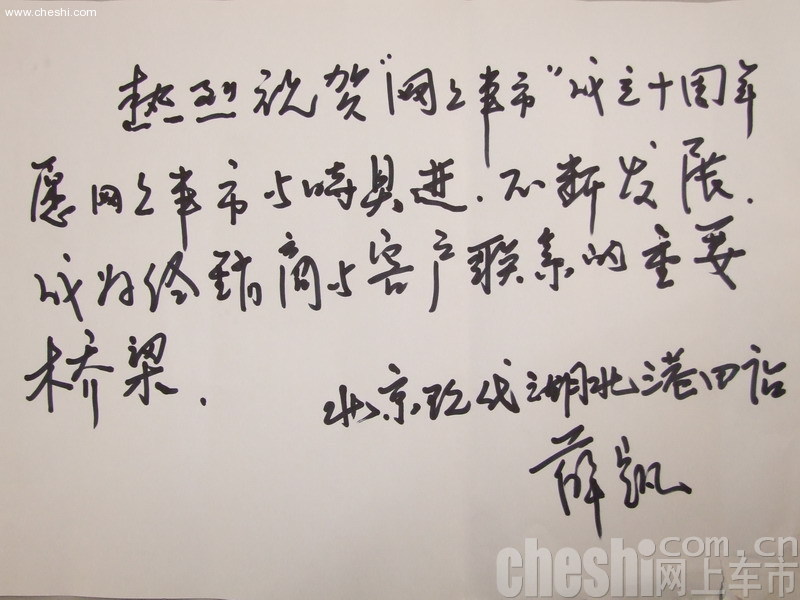 网上车市
www.cheshi.com
热烈祝贺“网上车市”成立十周年
愿网上车市与时具进.不断发展.
成为经销商与客户联系的重要
桥梁.
北京现代湖北港田
薛凯
cheshi.com.cn
网上车市